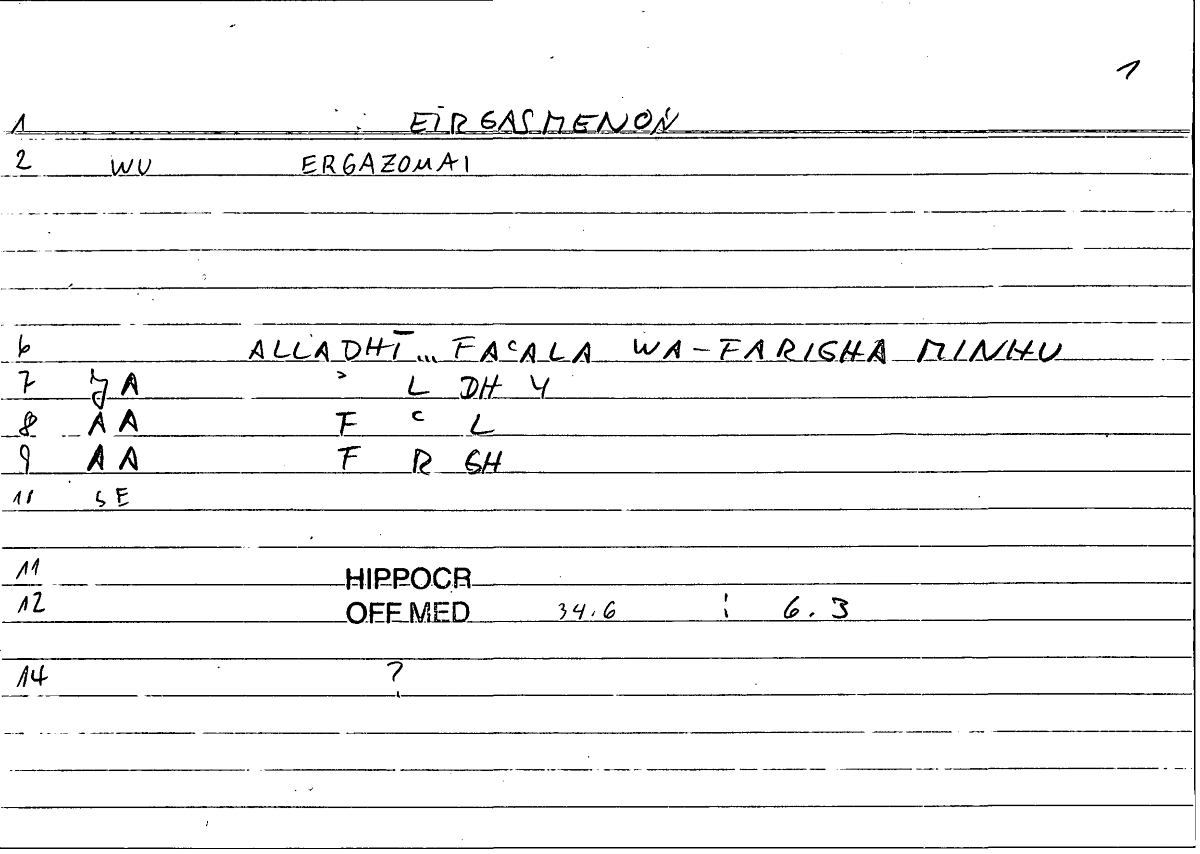 1
1 EIRGASMENON
2 WU ERGAZOMAI
6 ALLADHĪ... FAʿALA WA-FARIGHA MINHU
7 JA ʾ L DH Y
8 AA F ʿ L
9 AA F R GH
10 SE
11 HIPPOCR
12 OFF.MED 34.6 : 6.3
14 ?